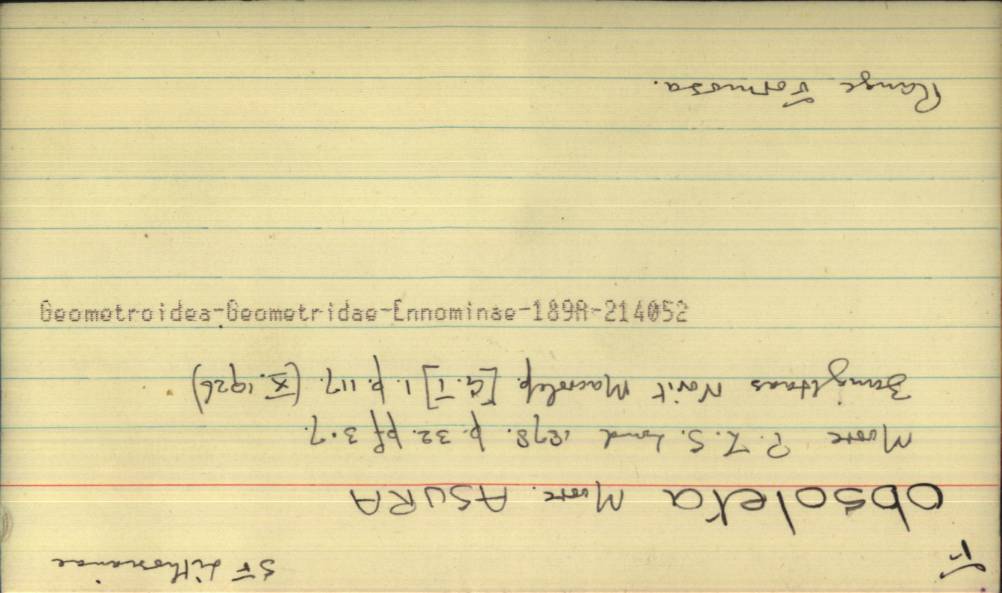 F
SF Lithosianae
obsoleta Moore. ASURA
Moore P.Z.S. Lond 1878. p. 32. pf 3.7.
Novit Macrolep. [G.I] 1. p. 117. (X. 1926)
Range Formosa.
Geometroidea-Geometridae-Ennominae-189A-214052